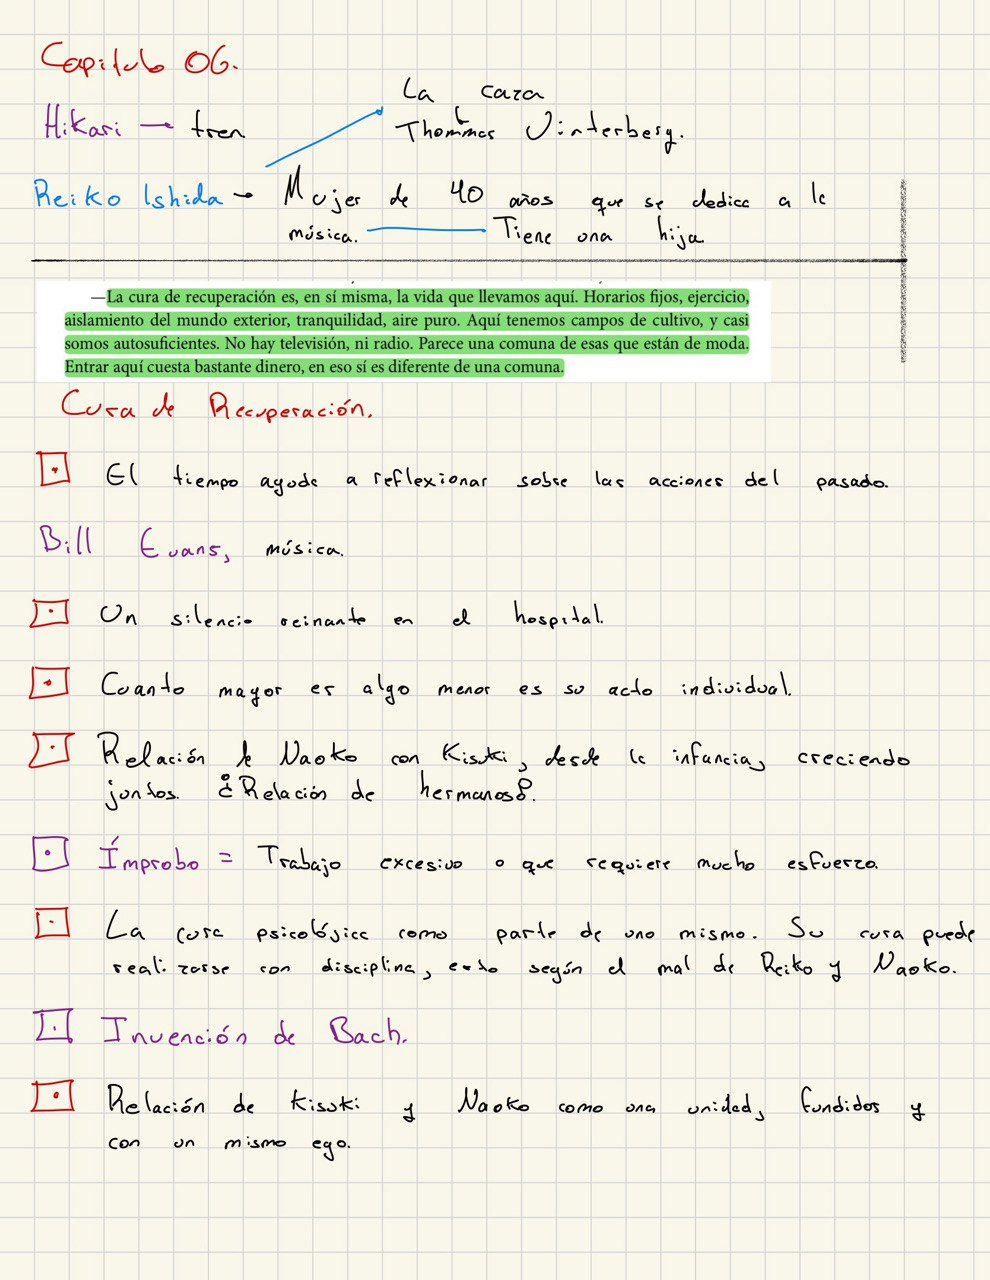 Capitulo 06.
La caza
Hikari → tren
Thommas Vinterberg.
Reiko Ishida → Mujer de 40 años que se dedica a la
música. Tiene una hija
—La cura de recuperación es, en sí misma, la vida que llevamos aquí. Horarios fijos, ejercicio,
aislamiento del mundo exterior, tranquilidad, aire puro. Aquí tenemos campos de cultivo, y casi
somos autosuficientes. No hay televisión, ni radio. Parece una comuna de esas que están de moda.
Entrar aquí cuesta bastante dinero, en eso sí es diferente de una comuna.
Cura de Recuperación.
El tiempo ayuda a reflexionar sobre las acciones del pasado.
Bill Evans, música.
Un silencio reinante en el hospital.
Cuanto mayor es algo menor es su acto individual.
Relación de Naoko con Kisuki, desde la infancia, creciendo
juntos. ¿Relación de hermanos?.
Ímprobo = Trabajo excesivo o que requiere mucho esfuerzo.
La cura psicológica como parte de uno mismo. Su cura puede
realizarse con disciplina, esto según el mal de Reiko y Naoko.
Invención de Bach.
Relación de Kisuki y Naoko como una unidad, fundidos y
con un mismo ego.